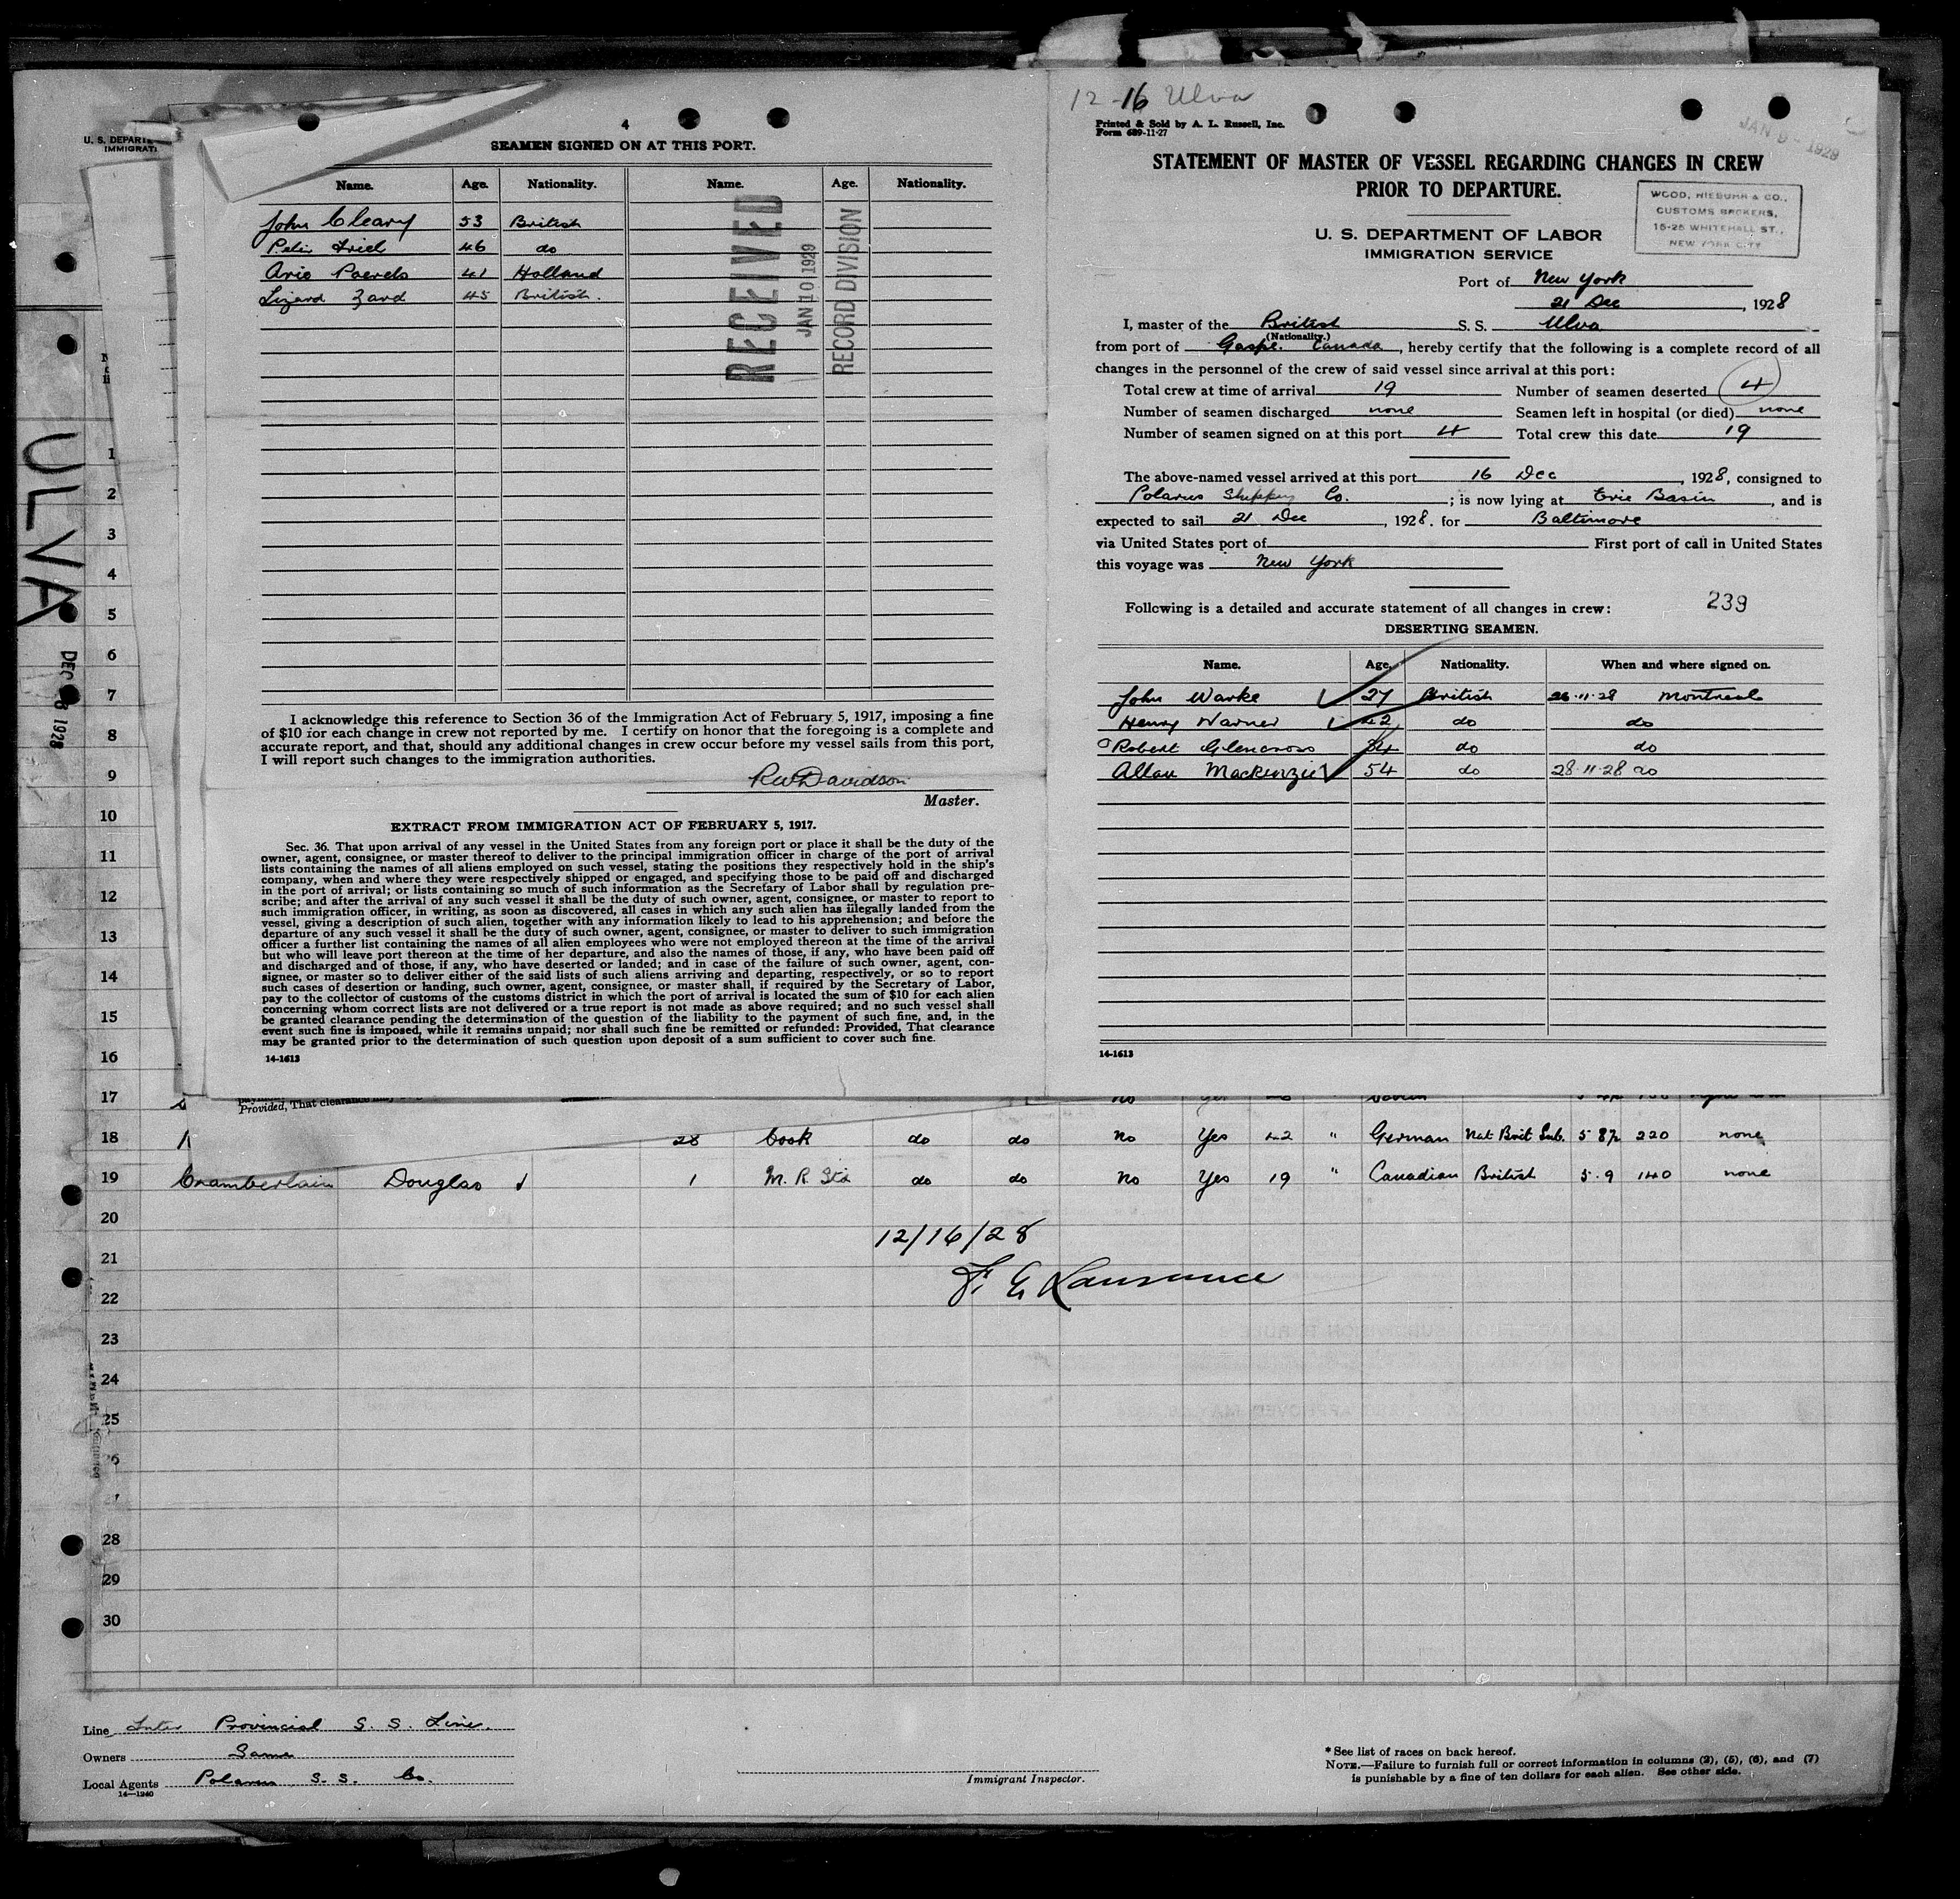 U. S. DEPARTM
IMMIGRATI
ULVA
DEC 1928
4
SEAMEN SIGNED ON AT THIS PORT.
Name. Age. Nationality. Name. Age. Nationality.
John Cleary 53 British
46 do
41 Holland
45 British.
RECEIVED
JAN 10 1929
RECORD DIVISION
I acknowledge this reference to Section 36 of the Immigration Act of February 5, 1917, imposing a fine
of $10 for each change in crew not reported by me. I certify on honor that the foregoing is a complete and
accurate report, and that, should any additional changes in crew occur before my vessel sails from this port,
I will report such changes to the immigration authorities.
Davidson
Master.
EXTRACT FROM IMMIGRATION ACT OF FEBRUARY 5, 1917.
Sec. 36. That upon arrival of any vessel in the United States from any foreign port or place it shall be the duty of the
owner, agent, consignee, or master thereof to deliver to the principal immigration officer in charge of the port of arrival
lists containing the names of all aliens employed on such vessel, stating the positions they respectively hold in the ship's
company, when and where they were respectively shipped or engaged, and specifying those to be paid off and discharged
in the port of arrival; or lists containing so much of such information as the Secretary of Labor shall by regulation pre-
scribe; and after the arrival of any such vessel it shall be the duty of such owner, agent, consignee, or master to report to
such immigration officer, in writing, as soon as discovered, all cases in which any such alien has illegally landed from the
vessel, giving a description of such alien, together with any information likely to lead to his apprehension; and before the
departure of any such vessel it shall be the duty of such owner, agent, consignee, or master to deliver to such immigration
officer a further list containing the names of all alien employees who were not employed thereon at the time of the arrival
but who will leave port thereon at the time of her departure, and also the names of those, if any, who have been paid off
and discharged and of those, if any, who have deserted or landed; and in case of the failure of such owner, agent, con-
signee, or master so to deliver either of the said lists of such aliens arriving and departing, respectively, or so to report
such cases of desertion or landing, such owner, agent, consignee, or master shall, if required by the Secretary of Labor,
pay to the collector of customs of the customs district in which the port of arrival is located the sum of $10 for each alien
concerning whom correct lists are not delivered or a true report is not made as above required; and no such vessel shall
be granted clearance pending the determination of the question of the liability to the payment of such fine, and, in the
event such fine is imposed, while it remains unpaid; nor shall such fine be remitted or refunded: Provided, That clearance
may be granted prior to the determination of such question upon deposit of a sum sufficient to cover such fine.
14-1613
12-16 Ulva
Printed & Sold by A. L. Russell, Inc.
Form 689-11-27
JAN 9 - 1929
STATEMENT OF MASTER OF VESSEL REGARDING CHANGES IN CREW
PRIOR TO DEPARTURE.
WOOD, NIEBUHR & CO.,
CUSTOMS BROKERS,
15-25 WHITEHALL ST.,
NEW YORK CITY
U. S. DEPARTMENT OF LABOR
IMMIGRATION SERVICE
Port of New York
21 Dec, 1928
I, master of the British S. S. Ulva
(Nationality.)
from port of Gaspe. Canada, hereby certify that the following is a complete record of all
changes in the personnel of the crew of said vessel since arrival at this port:
Total crew at time of arrival 19 Number of seamen deserted 4
Number of seamen discharged none Seamen left in hospital (or died) none
Number of seamen signed on at this port 4 Total crew this date 19
The above-named vessel arrived at this port 16 Dec, 1928, consigned to
Polarus Shipping Co.; is now lying at Erie Basin, and is
expected to sail 21 Dec, 1928. for Baltimore
via United States port of First port of call in United States
this voyage was New York
Following is a detailed and accurate statement of all changes in crew: 239
DESERTING SEAMEN.
Name. Age. Nationality. When and where signed on.
John Warke 27 British 26-11-28 Montreal
Henry Warner 42 do do
Robert Glencross do do
Allan Mackenzie 54 do 28-11-28 do
14-1613
1
2
3
4
5
6
7
8
9
10
11
12
13
14
15
16
17 Provided, That clearance
18 28 Cook do do No Yes 42 " German Nat Brit Sub. 5 8½ 220 none
19 Chamberlain Douglas 1 M. R. Stx do do No Yes 19 " Canadian British 5.9 140 none
20
12/16/28
21
F. E. Lawrence
22
23
24
25
28
29
30
Line Inter Provincial S. S. Line.
Owners Same
Local Agents Polarus S. S. Co.
14—1240
Immigrant Inspector.
* See list of races on back hereof.
NOTE.—Failure to furnish full or correct information in columns (2), (5), (6), and (7)
is punishable by a fine of ten dollars for each alien. See other side.